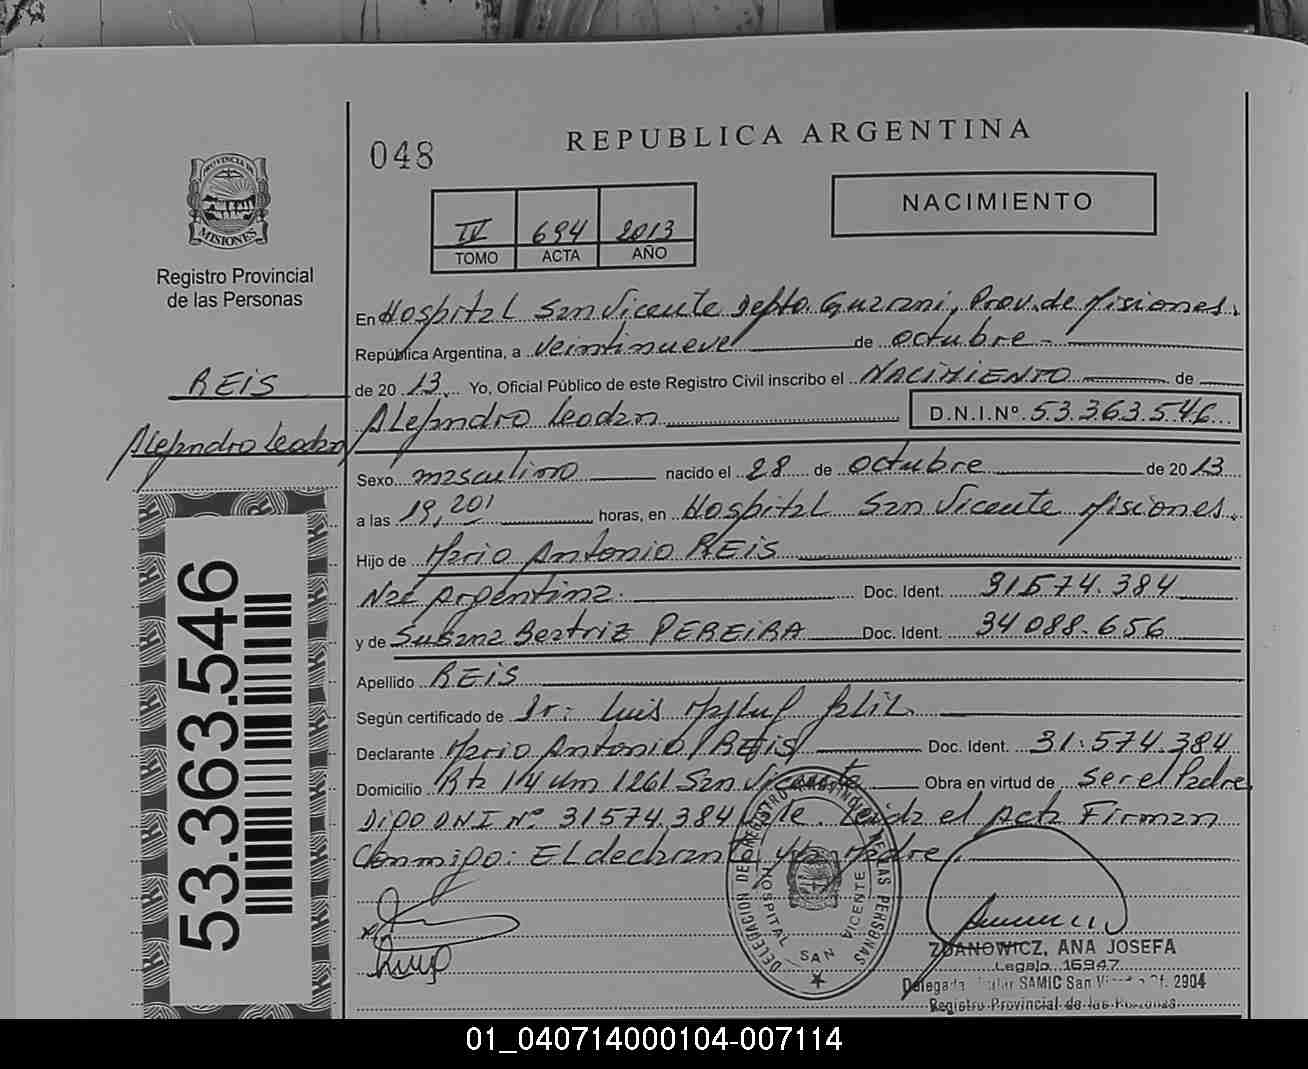 048
REPUBLICA ARGENTINA
NACIMIENTO
IV 694 2013
TOMO ACTA AÑO
PROVINCIA DE
MISIONES
Registro Provincial
de las Personas
REIS
Alejandro Leodan
53.363.546
En Hospital San Vicente Depto. Guarani, Prov. de Misiones.
República Argentina, a veintinueve de octubre
de 2013. Yo, Oficial Público de este Registro Civil inscribo el NACIMIENTO de
Alejandro Leodan D.N.I.Nº 53.363.546
Sexo masculino nacido el 28 de octubre de 2013
a las 19,20 horas, en Hospital San Vicente Misiones.
Hijo de Mario Antonio REIS
Nac Argentina. Doc. Ident. 31.574.384
y de Susana Beatriz PEREIRA Doc. Ident. 34 088.656
Apellido REIS
Según certificado de Dr: Luis
Declarante Mario Antonio REIS Doc. Ident. 31.574.384
Domicilio Rta 14 Km 1261 San Vicente Obra en virtud de Ser el Padre
DNI Nº 31574.384 Leida el acta Firman
Conmigo: El declarante y la Madre.
DELEGACION DEL REGISTRO PROVINCIAL DE LAS PERSONAS
HOSPITAL SAN VICENTE
ZDANOWICZ, ANA JOSEFA
Legajo 16947
Delegada SAMIC San Of. 2904
Registro Provincial de las Personas
01_040714000104-007114